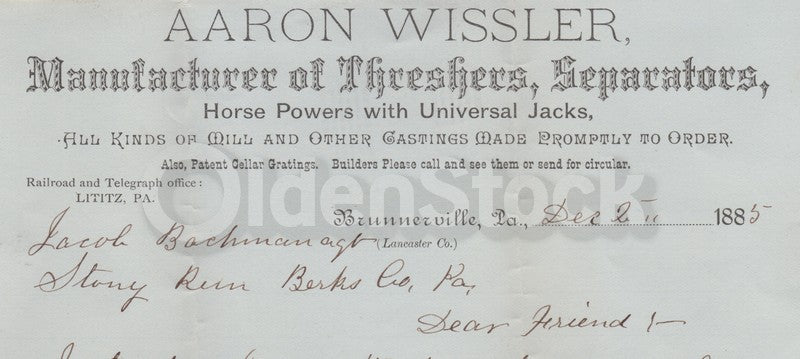 AARON WISSLER,
Manufacturer of Threshers, Separators,
Horse Powers with Universal Jacks,
ALL KINDS OF MILL AND OTHER CASTINGS MADE PROMPTLY TO ORDER.
Also, Patent Cellar Gratings. Builders Please call and see them or send for circular.
Railroad and Telegraph office:
LITITZ, PA.
OldenStock
Brunnerville, Pa., Dec 2 " 1885
(Lancaster Co.)
Jacob Bachman agt
Stony Run Berks Co, Pa,
Dear Friend :-